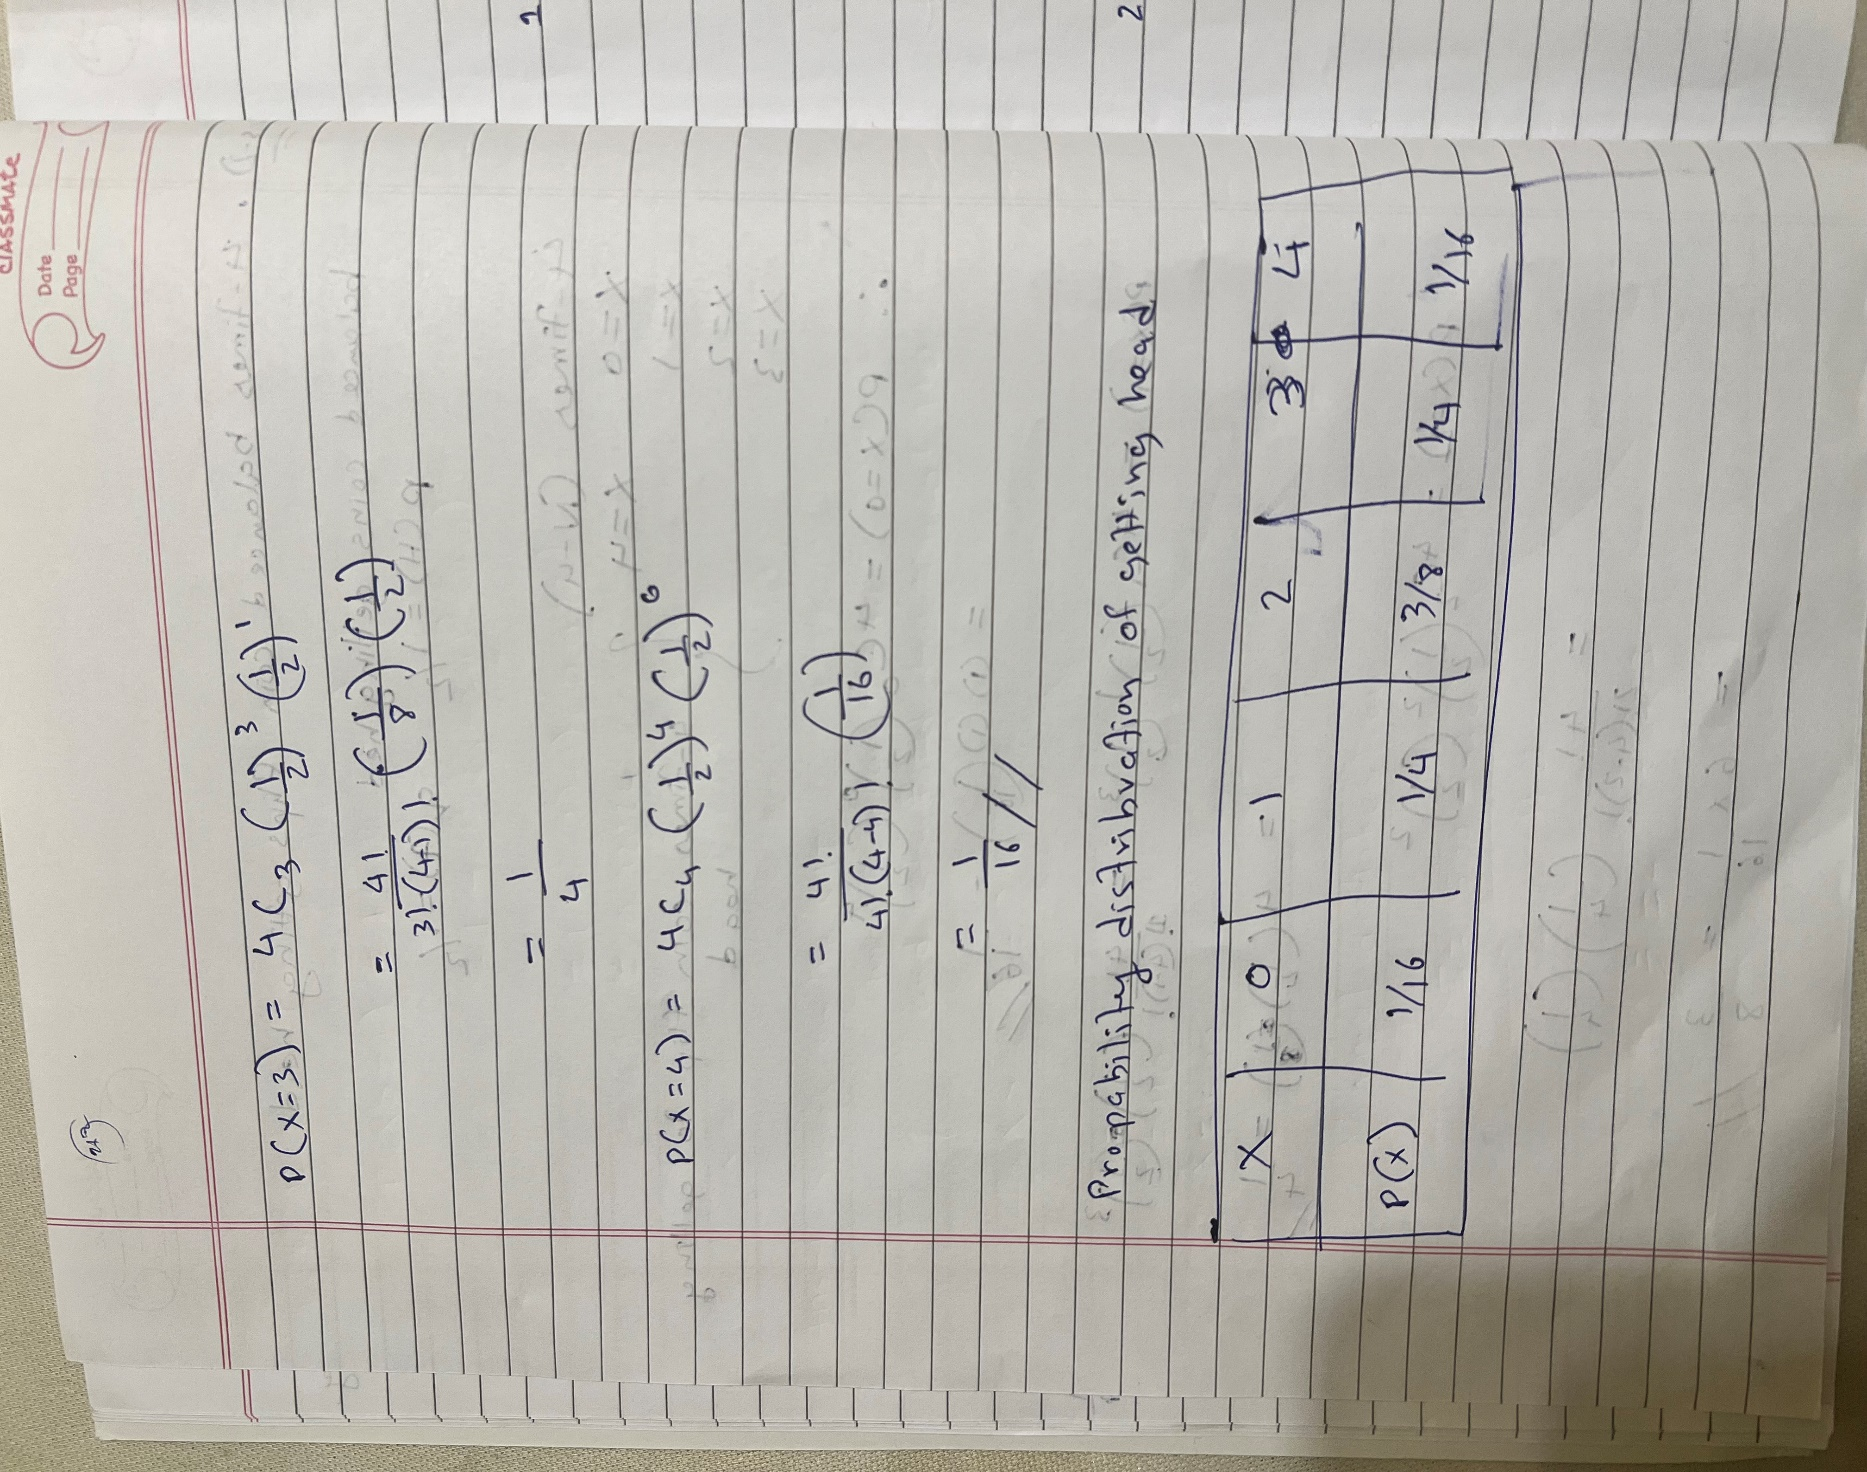 classmate
Date
Page
P(x=3) = 4C3 (1/2)^3 (1/2)^1
= 4!/3!(4-1)! (1/8) (1/2)
= 1/4
P(x=4) = 4C4 (1/2)^4 (1/2)^0
= 4!/4!(4-4)! (1/16)
= 1/16 //
Propability distribution of getting head
X= 0 =1 2 3 4
P(x) 1/16 1/4 3/8 1/4 1/16
1
2